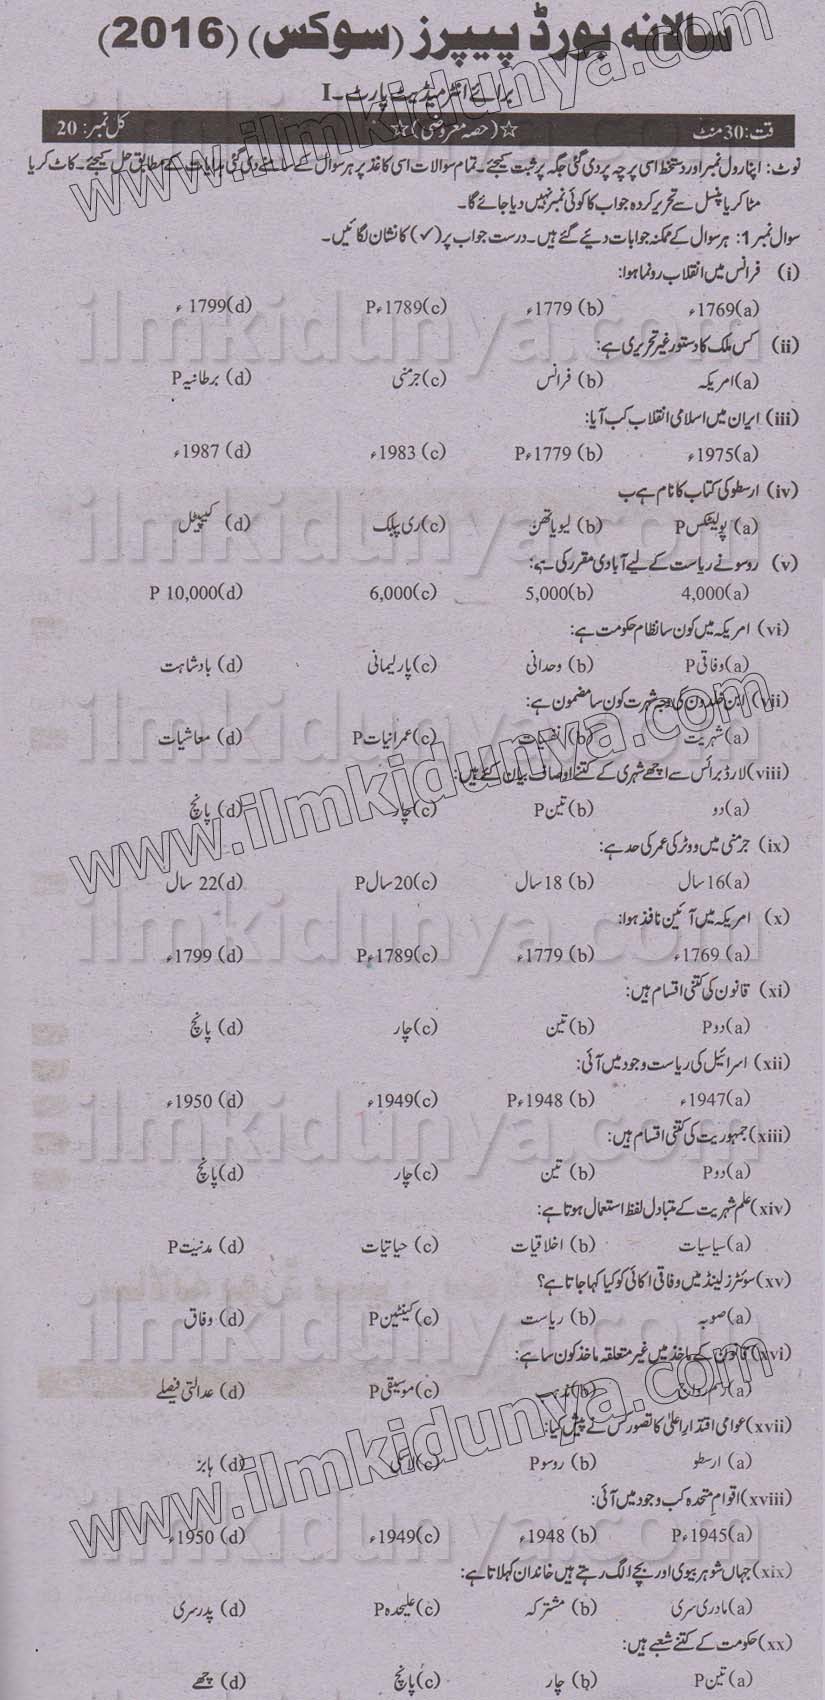 سالانہ بورڈ پیپرز (سوکس) (2016)
برائے انٹرمیڈیٹ پارٹ۔I
وقت: 30 منٹ ☆(حصہ معروضی)☆ کل نمبر: 20
نوٹ: اپنا رول نمبر اور دستخط اسی پرچہ پر دی گئی جگہ پر ثبت کیجئے۔ تمام سوالات اسی کاغذ پر ہر سوال کے سامنے دی گئی ہدایات کے مطابق حل کیجئے۔ کاٹ کر یا
مٹا کر یا پنسل سے تحریر کردہ جواب کا کوئی نمبر نہیں دیا جائے گا۔
سوال نمبر 1: ہر سوال کے ممکنہ جوابات دیئے گئے ہیں۔ درست جواب پر (✓) کا نشان لگائیں۔
(i) فرانس میں انقلاب رونما ہوا:
(a) 1769ء (b) 1779ء (c) 1789ء P (d) 1799ء
(ii) کس ملک کا دستور غیر تحریری ہے:
(a) امریکہ (b) فرانس (c) جرمنی (d) برطانیہ P
(iii) ایران میں اسلامی انقلاب کب آیا:
(a) 1975ء (b) 1779ء P (c) 1983ء (d) 1987ء
(iv) ارسطو کی کتاب کا نام ہے ب
(a) پولیٹکس P (b) لیویاتھن (c) ری پبلک (d) کیپیٹل
(v) روسو نے ریاست کے لیے آبادی مقرر کی ہے:
(a) 4,000 (b) 5,000 (c) 6,000 (d) 10,000 P
(vi) امریکہ میں کون سا نظام حکومت ہے:
(a) وفاقی P (b) وحدانی (c) پارلیمانی (d) بادشاہت
(vii) ابن خلدون کی وجہ شہرت کون سا مضمون ہے:
(a) شہریت (b) نفسیات (c) عمرانیات P (d) معاشیات
(viii) لارڈ برائس سے اچھے شہری کے کتنے اوصاف بیان کئے ہیں:
(a) دو (b) تین P (c) چار (d) پانچ
(ix) جرمنی میں ووٹر کی عمر کی حد ہے:
(a) 16 سال (b) 18 سال (c) 20 سال P (d) 22 سال
(x) امریکہ میں آئین نافذ ہوا:
(a) 1769ء (b) 1779ء (c) 1789ء P (d) 1799ء
(xi) قانون کی کتنی اقسام ہیں:
(a) دو P (b) تین (c) چار (d) پانچ
(xii) اسرائیل کی ریاست وجود میں آئی:
(a) 1947ء (b) 1948ء P (c) 1949ء (d) 1950ء
(xiii) جمہوریت کی کتنی اقسام ہیں:
(a) دو P (b) تین (c) چار (d) پانچ
(xiv) علم شہریت کے متبادل لفظ استعمال ہوتا ہے:
(a) سیاسیات (b) اخلاقیات (c) حیاتیات (d) مدنیت P
(xv) سوئٹزرلینڈ میں وفاقی اکائی کو کیا کہا جاتا ہے؟
(a) صوبہ (b) ریاست (c) کینٹین P (d) وفاق
(xvi) قانون کے ماخذ میں غیر متعلقہ ماخذ کون سا ہے:
(a) رسم رواج (b) مذہب (c) موسیقی P (d) عدالتی فیصلے
(xvii) عوامی اقتدار اعلیٰ کا تصور کس نے پیش کیا:
(a) ارسطو (b) روسو P (c) لاسکی (d) ہابز
(xviii) اقوام متحدہ کب وجود میں آئی:
(a) 1945ء P (b) 1948ء (c) 1949ء (d) 1950ء
(xix) جہاں شوہر بیوی اور بچے الگ رہتے ہیں خاندان کہلاتا ہے:
(a) مادری سری (b) مشترکہ (c) علیحدہ P (d) پدر سری
(xx) حکومت کے کتنے شعبے ہیں:
(a) تین P (b) چار (c) پانچ (d) چھے
www.ilmkidunya.com
ilmkidunya.com